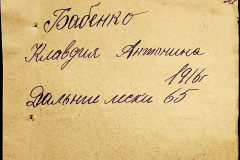 Бабенко
Клавдия Антонина
1916г
Дальние лески 65